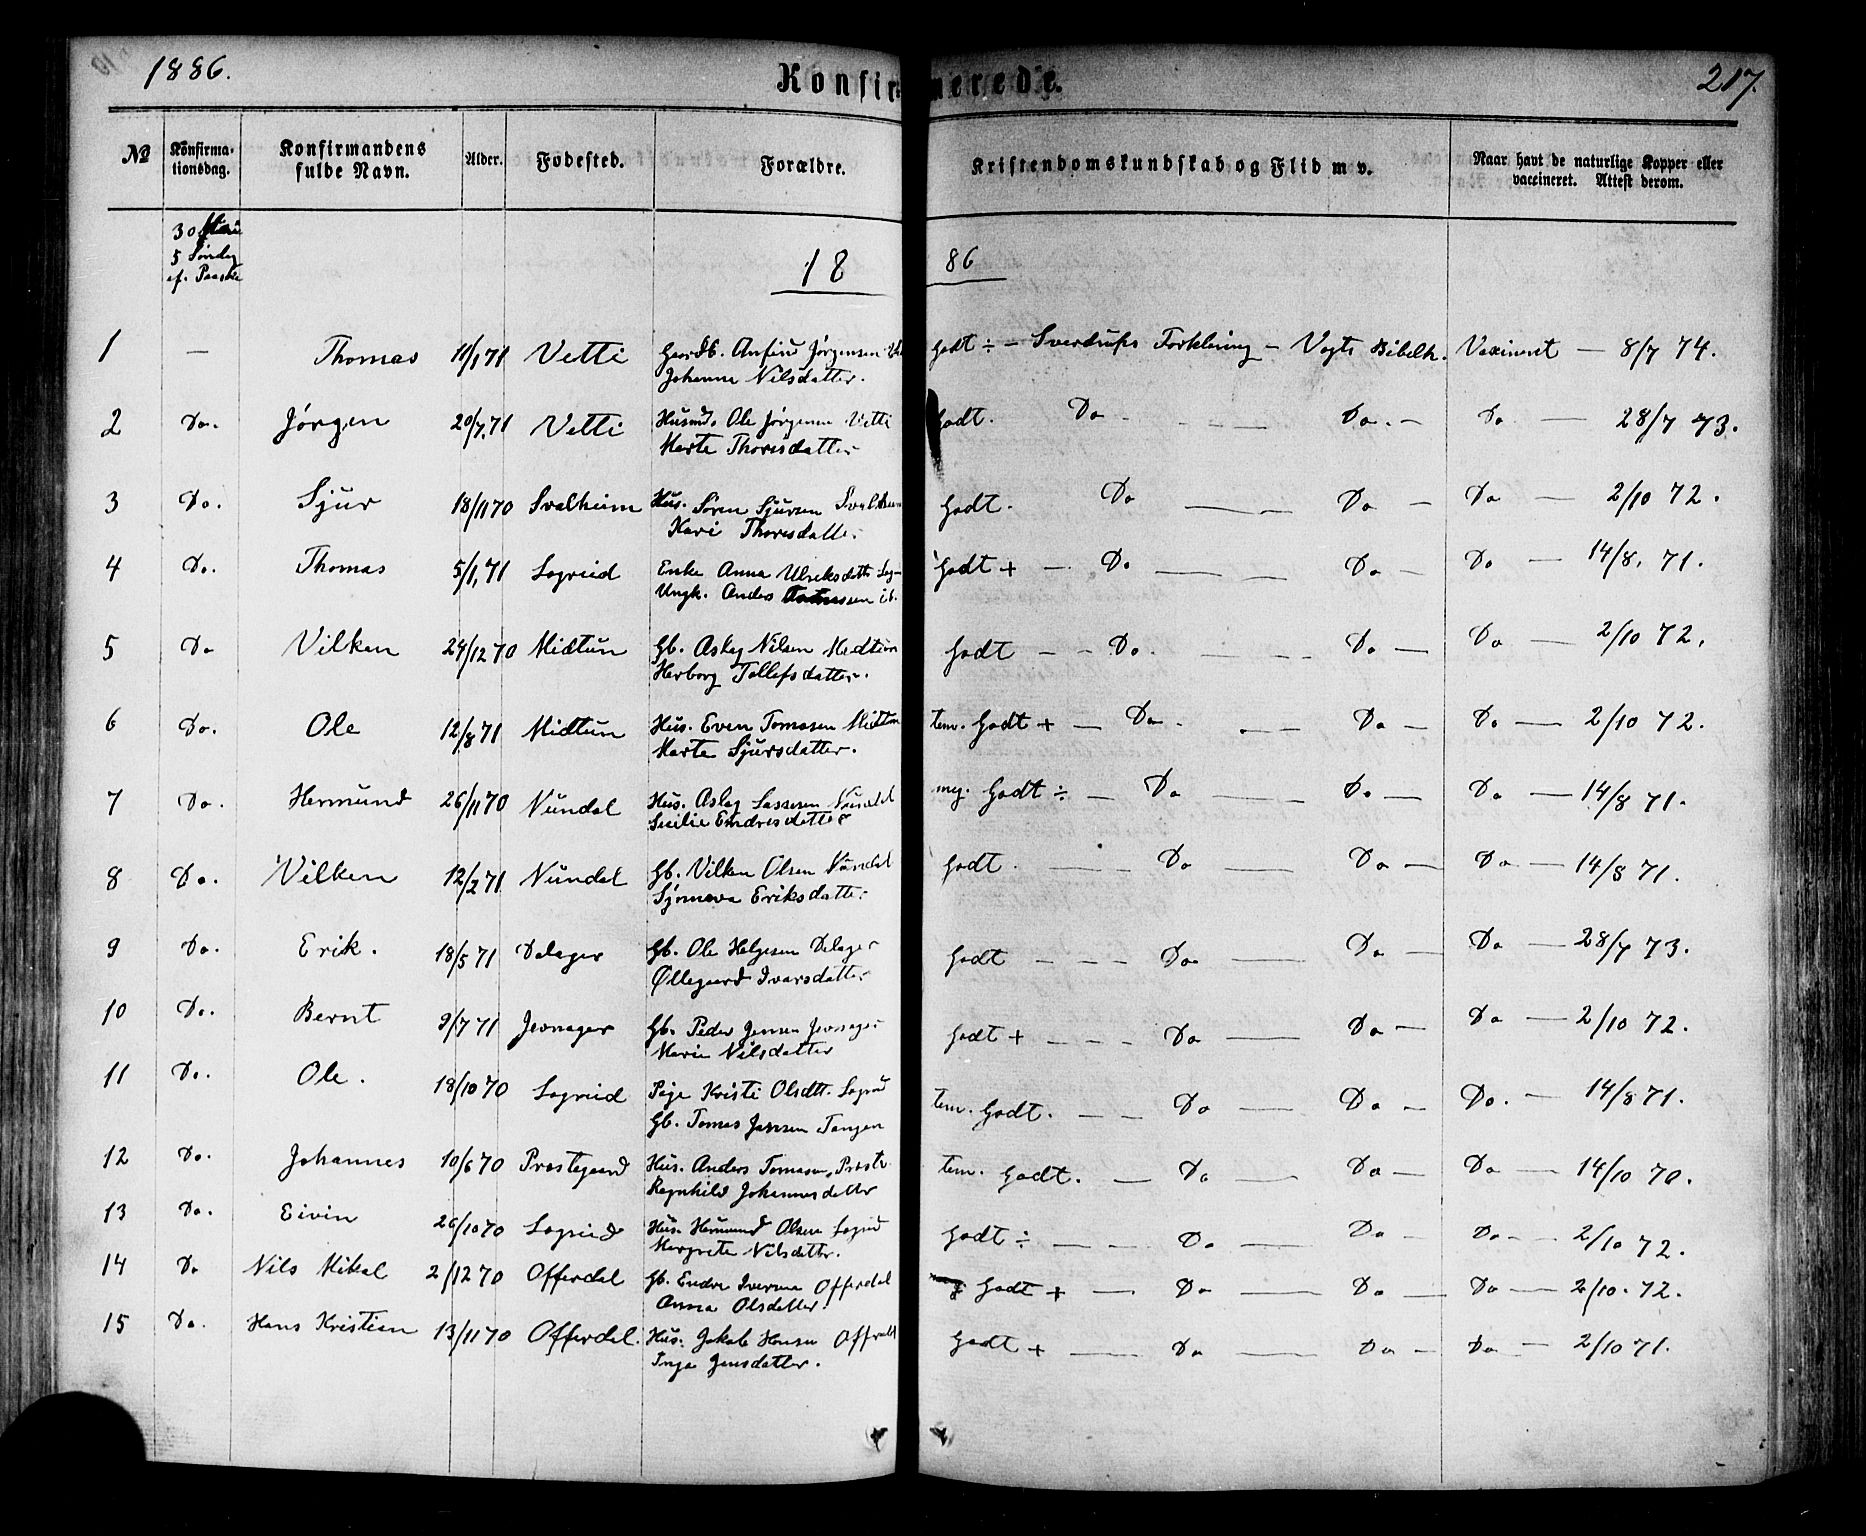 1886.
Konfirmerede.
217.
No
Konfirma-
tionsdag.
Konfirmandens
fulde Navn.
Alder.
Fødested.
Forældre.
Kristendomskundskab og Flid m v.
Naar havt de naturlige Kopper eller
vaccineret. Attest derom.
30
5 Søndag
ef. Paaske
1886
1 — Thomas 11/1 71 Vetti Gaardb. Anfind Jørgensen Godt ÷ - Sverdrups Forklaring - Vogts Bibelh. Vaxineret — 8/7 74.
Johanne Nilsdatter.
2 Do. Jørgen 20/7.71 Vetti Husmd. Ole Jørgensen Vetti Godt. Do — Do. - Do — 28/7 73.
Marte Thoresdatter
3 Do. Sjur 18/11 70 Svalheim Hus. Søren Sjursen Svalheim Godt. Do — Do — Do — 2/10 72.
Kari Thoresdatter
4 Do. Thomas 5/1, 71 Legreid Enke Anna Ulriksdatter Leg- Godt + - Do — Do — Do — 14/8, 71.
Ungk. Anders ib.
5 Do Vilken 24/12 70 Midtun Gb. Aslag Nilsen Midtun Godt - - Do. — Do — Do — 2/10 72.
Herborg Tollefsdatter.
6 Do. Ole 12/8 71 Midtun Hus. Even Tomasen Midtun tem. Godt + — Do. — Do — Do — 2/10 72.
Marta Sjursdatter.
7 Do. Hermund 26/11 70 Nundal Hus. Aslag Lassesen Nundal meg. Godt ÷ — Do — Do — Do — 14/8 71.
Sesilie Endresdatter
8 Do. Vilken 12/2 71 Nundal Gb. Vilken Olsen Nundal Godt. — Do — Do — Do — 14/8 71.
Sjømeva Eriksdatter
9 Do. Erik. 18/5 71 Dalager Gb. Ole Helgesen Dalager Godt - - - Do — Do — Do — 28/7 73.
Øllegaard Ivarsdatter
10 Do. Bernt 9/7 71 Jevnager Gb. Peder Jensen Jevnager Godt + - - - Do — Do — Do — 2/10 72.
Marie Nilsdatter
11 Do. Ole. 18/10 70 Legreid Pige Kristi Olsdtt. Legreid tem. Godt. - - Do — Do — Do. — 14/8 71.
Gb. Tomas Jansen Tangen
12 Do. Johannes 10/6 70 Prestegaard Hus. Anders Tomasen, Preste- tem. Godt. — Do — Do — Do — 14/10 70.
Ragnhild Johannesdatter
13 Do. Eivin 26/10 70 Legreid Hus. Hermund Olsen Legreid Godt ÷ - - Do — Do — Do- — 2/10 72.
Margrete Nilsdatter.
14 Do Nils Mikal 2/12 70 Offerdal Gb. Endre Iversen Offerdal Godt + — Do — Do — Do — 2/10. 72.
Anna Olsdatter.
15 Do. Hans Kristian 13/11 70 Offerdal. Hus. Jakob Hansen Offerdal Godt + — Do — Do — Do — 2/10 71.
Inga Jensdatter.